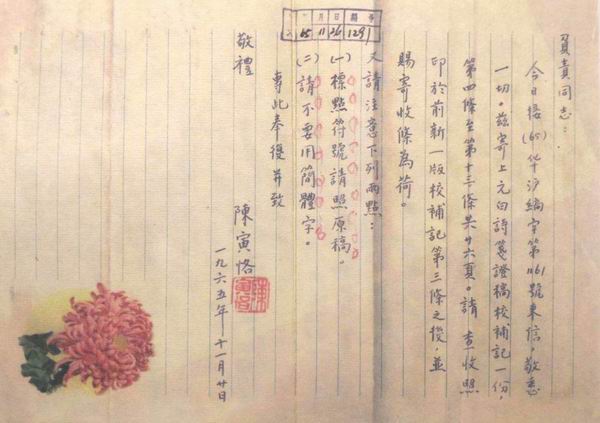 負責同志：
今日接(65)华沪编字第1161號來信，敬悉
一切。茲寄上元白詩箋證稿校補記一份，
第四條至第十三條共廿六頁。請 查收照
印於前新一版校補記第三條之後，並
賜寄收條為荷。
又請注意下列兩點：
(一)標點符號請照原稿。
(二)請不要用簡體字。
專此奉復并致
敬禮
陳寅恪
陳寅恪
一九六五年十一月廿日
月 日 編 号
65 11 26 1291